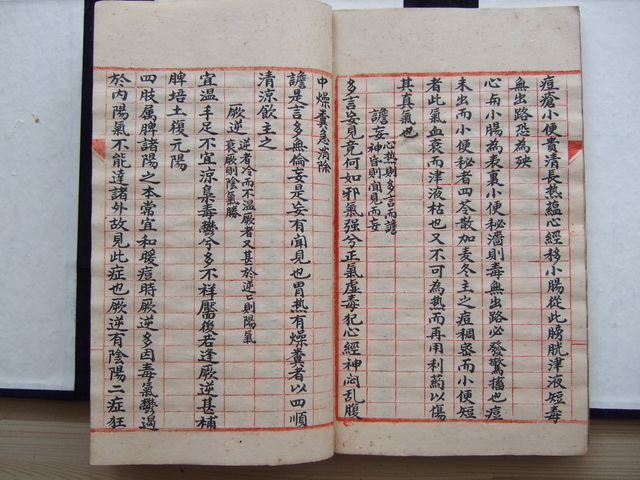 痘瘡小便貴清長熱蘊心經移小腸從此膀胱津液短毒
無出路恐為殃
心与小腸為表裏小便秘濇則毒無出路必發驚搐也痘
未出而小便秘者四苓散加麦冬主之痘稠密而小便短
者此氣血衰而津液枯也又不可為熱而再用利药以傷
其真氣也
譫妄心熱則多言而譫
神昏則闻見而妄
多言妄見竟何如邪氣强兮正氣虛毒犯心經神闷乱腹
中燥糞急消除
譫是言多無倫妄是妄有闻見也胃热有燥糞者以四順
清涼飲主之
厥逆逆者冷而不温厥者又甚於逆亡則陽氣
衰厥則陰氣勝
宜温手足不宜涼臬毒欝兮多不祥醫後若逢厥逆甚補
脾培土復元陽
四肢属脾諸陽之本常宜和暖痘時厥逆多因毒氣欝遏
於内陽氣不能達諸外故見此症也厥逆有陰陽二症狂